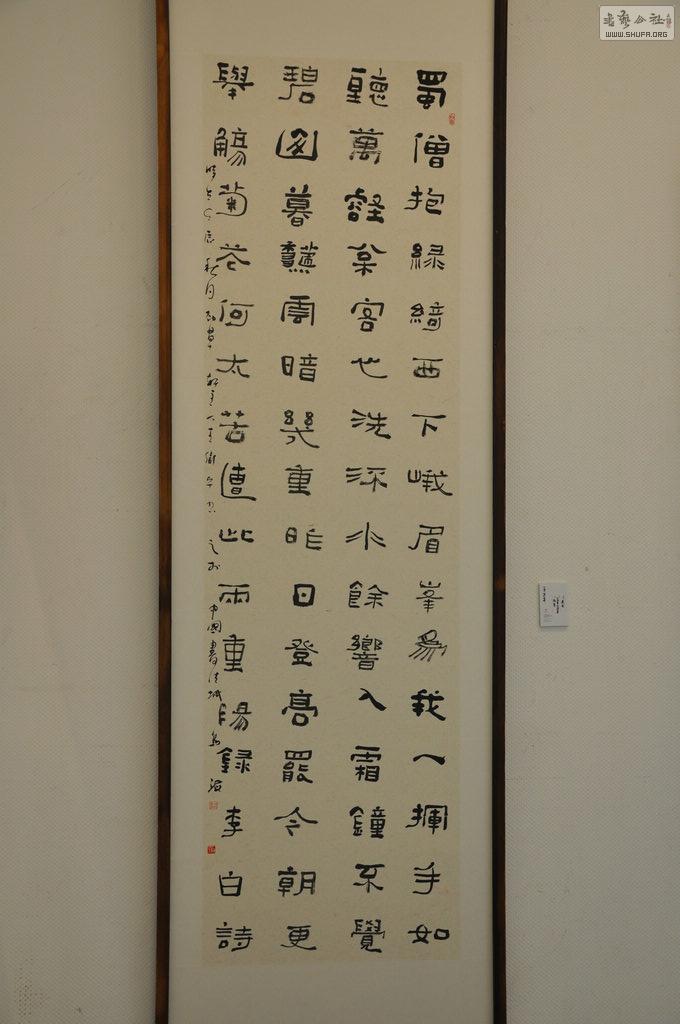 蜀僧抱綠綺西下峨眉峯為我一揮手如
聽萬壑枩客心洗流水餘響入霜鐘不覺
碧山暮龝雲暗幾重昨日登高罷今朝更
舉觴菊花何太苦遭此兩重陽錄李白詩
秋月 軒主人 之於 中國書法城烏海
書藝公社
WWW.SHUFA.ORG